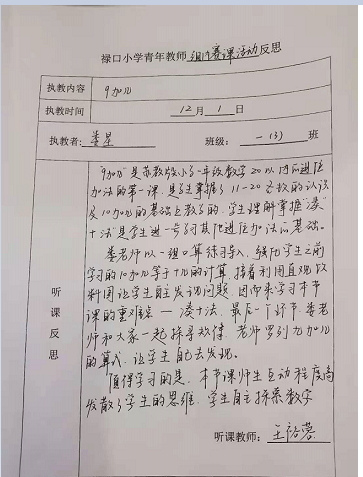 禄口小学青年教师 组内赛课活动 反思
执教内容 9加几
执教时间 12 月 1 日
执教者: 娄星 班级: 一(3) 班
听课反思
“9加几”是苏教版小学一年级数学20以内的进位
加法的第一课,是学生掌握了11-20各数的认识
及10加几的基础上教学的。学生理解掌握“凑
十法”是学生进一步学习其他进位加法的基础。
娄老师以一组口算练习导入,学生之前
学习的10加几等于十几的计算,接着利用直观的
料图让学生自主发现问题,因而来学习本节
课的重难点—凑十法。最后一个环节,娄老
师和大家一起探寻规律,老师罗列九加几
的算式,让学生自己去发现。
值得学习的是,本节课师生互动程度高
发散了学生的思维,学生自主探索数学
听课教师: 王裕蓉